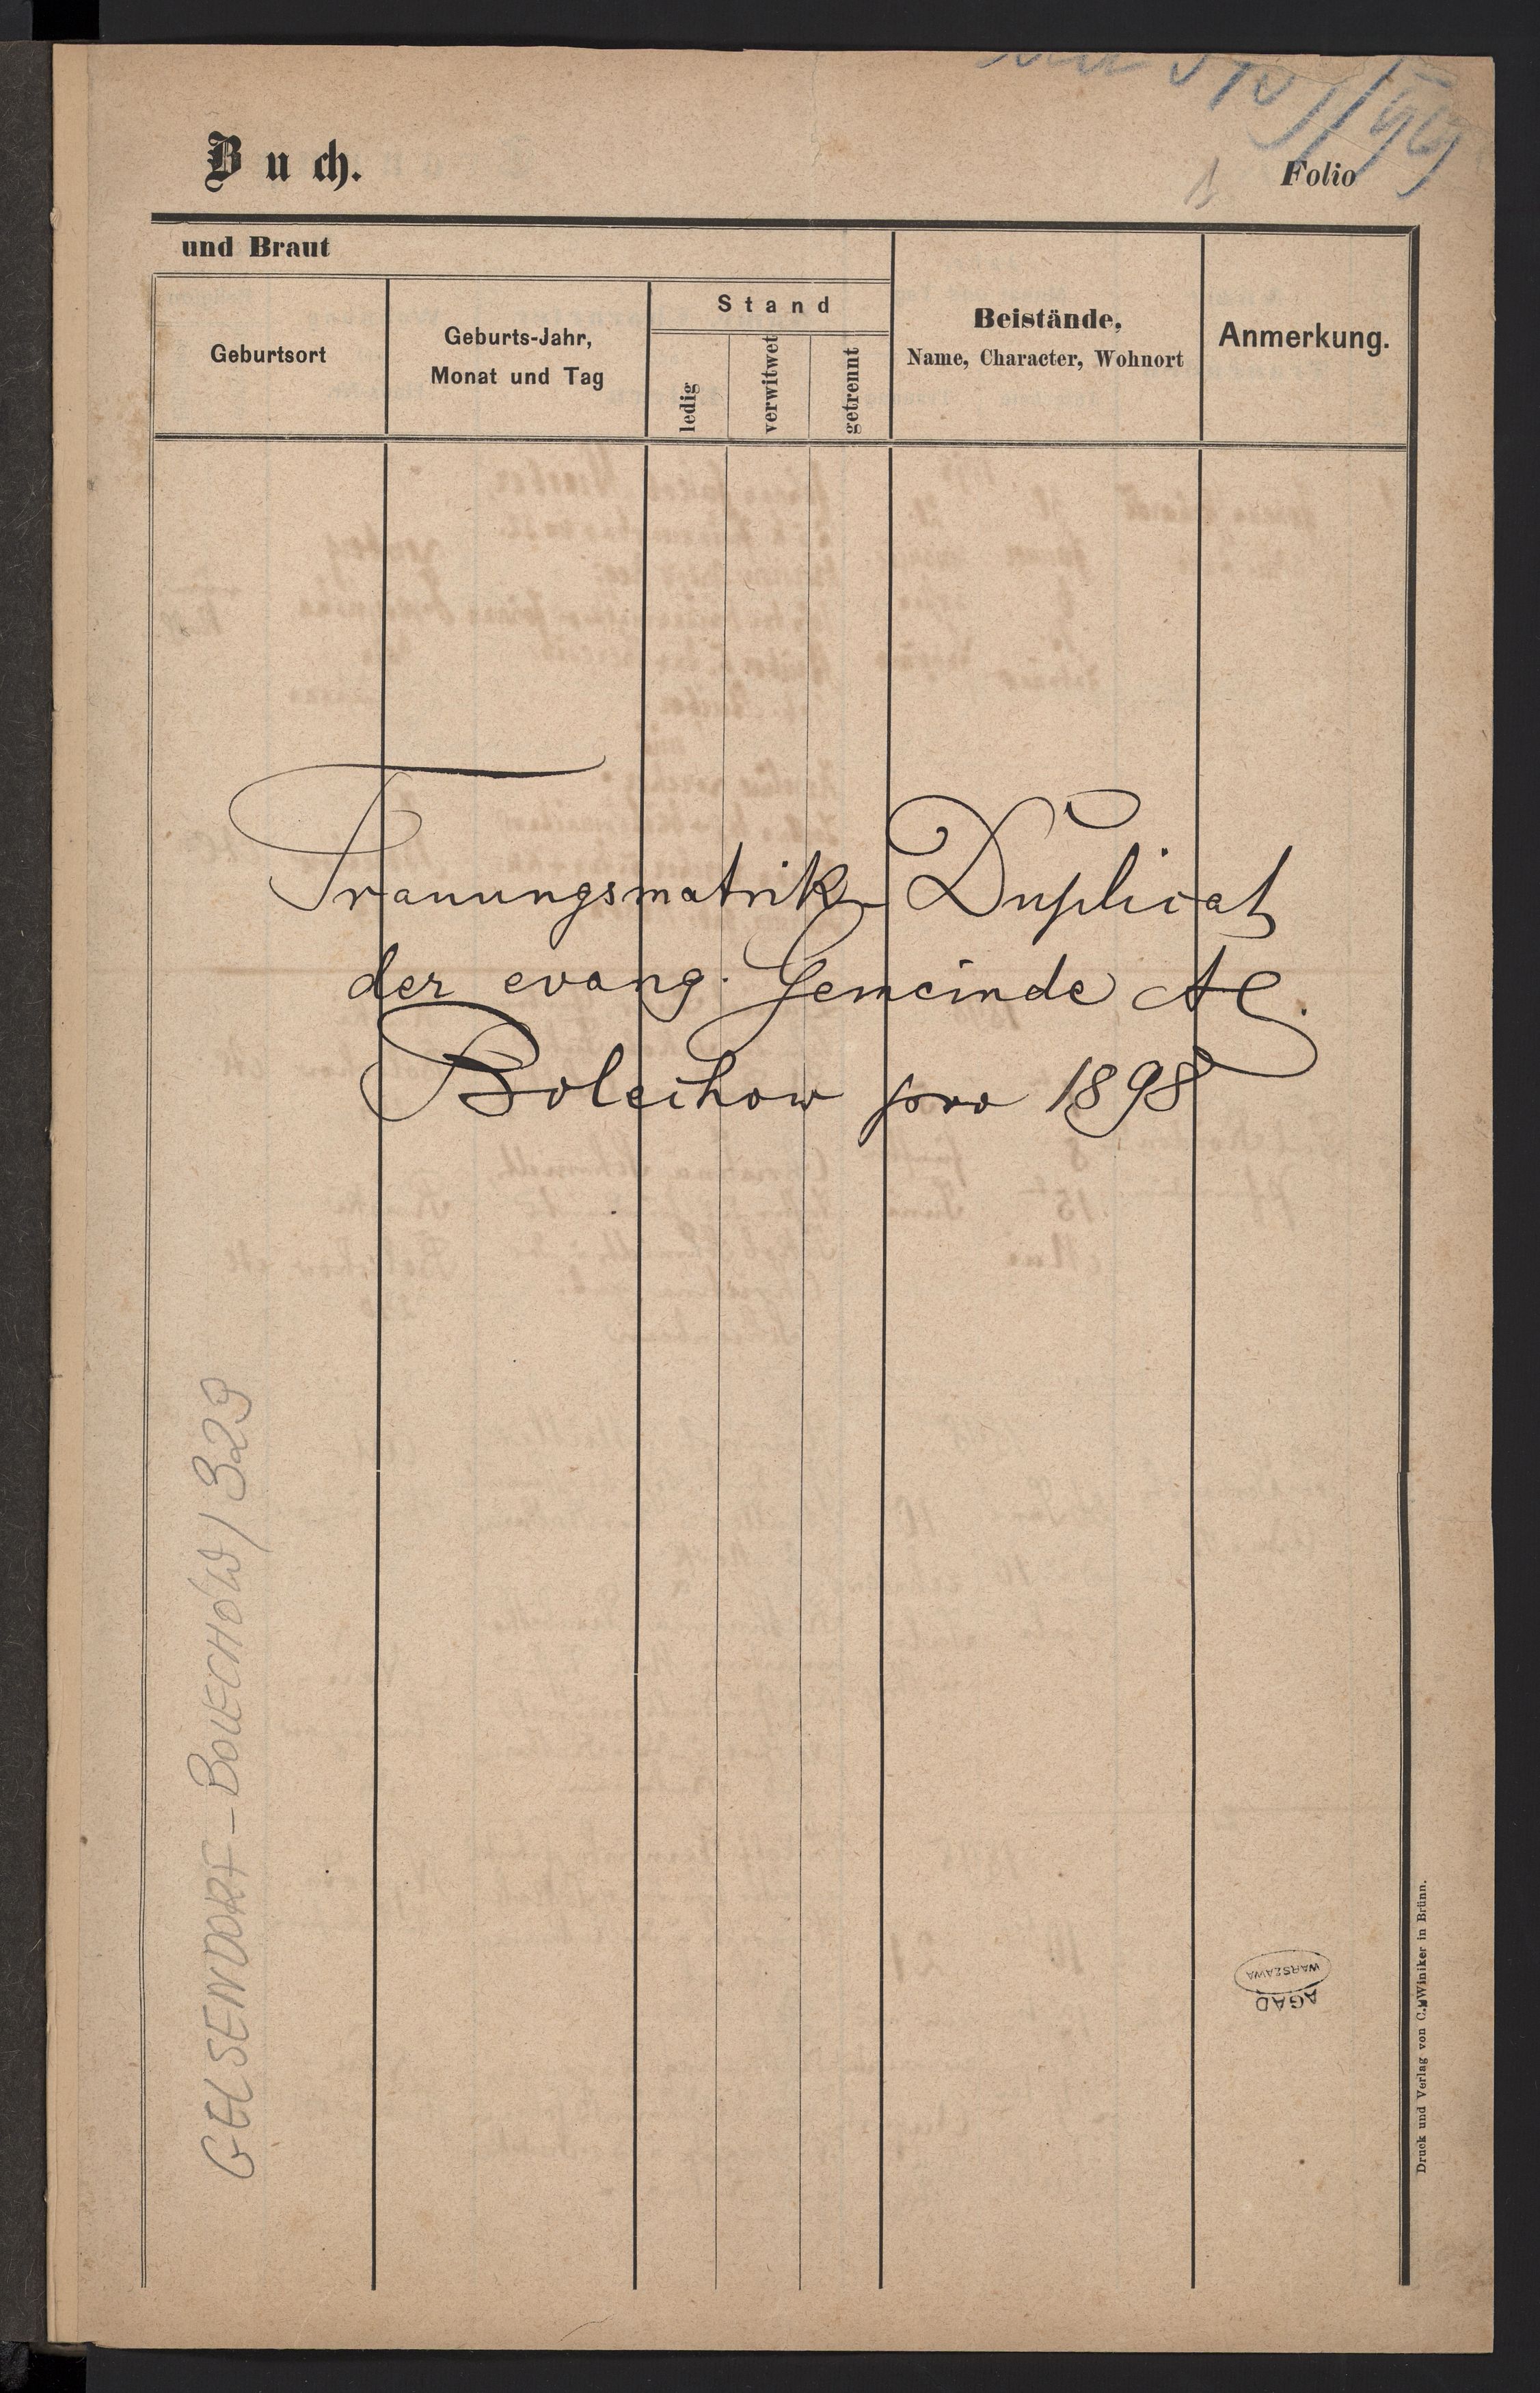 Buch.
Folio
1
und Braut
Geburtsort
Geburts-Jahr,
Monat und Tag
Stand
ledig
verwitwet
getrennt
Beistände,
Name, Character, Wohnort
Anmerkung.
Trauungsmatrik-Duplicat
der evang. Gemeinde AC.
Bolechow pro 1898
GELSENDORF-BOLECHÓW/323
WARSZAWA
AGAD
Druck und Verlag von C. Winiker in Brünn.